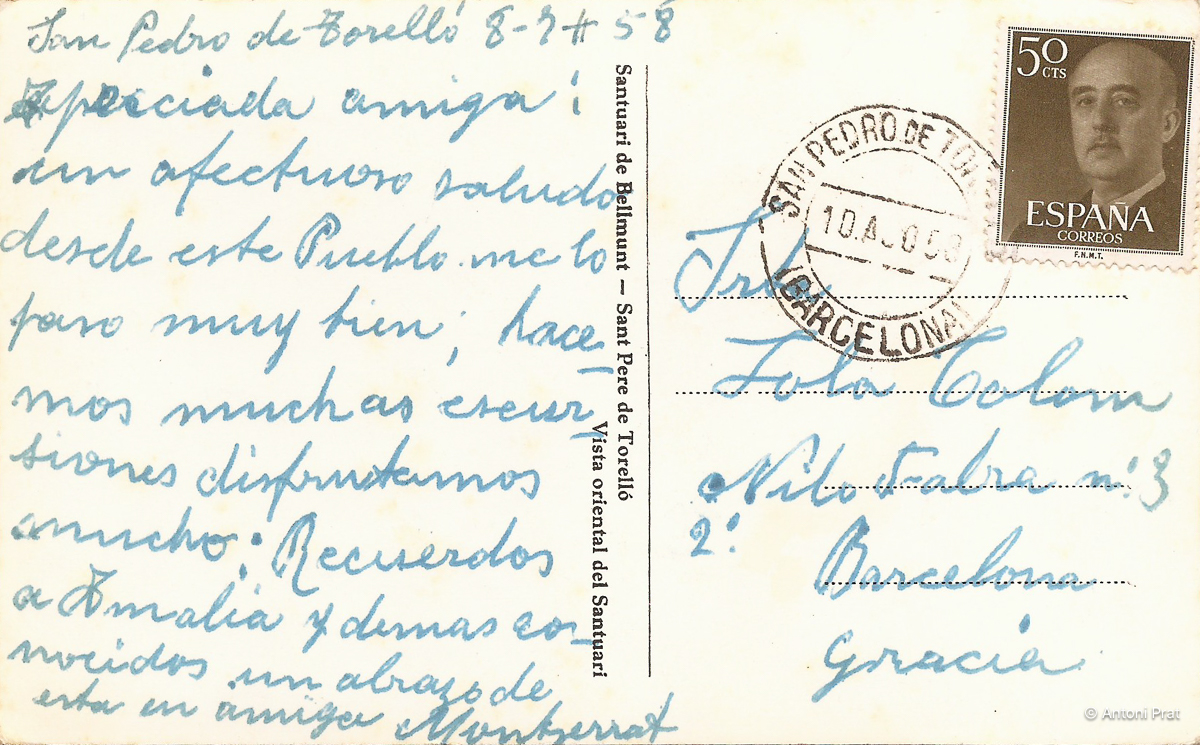 San Pedro de Torelló 8-9-58
Apreciada amiga:
un afectuoso saludo
desde este Pueblo me lo
paso muy bien, hace-
mos muchas escur-
siones disfrutamos
mucho: Recuerdos
a Amalia y demas co-
nocidos un abrazo de
esta su amiga Montserrat
Santuari de Bellmunt — Sant Pere de Torelló
Vista oriental del Santuari
50
CTS
ESPAÑA
CORREOS
F.N.M.T.
SAN PEDRO DE
10 AGO 58
(BARCELONA)
Srta
Lola Colom
Nilo Fabra nº 3
2º
Barcelona
Gracia
© Antoni Prat